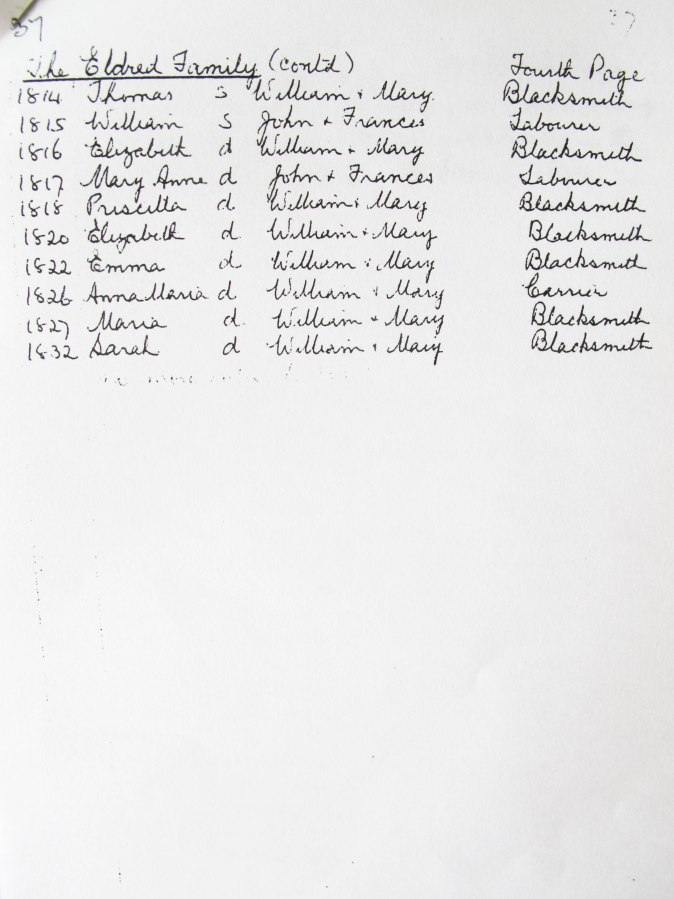 37 37
The Eldred Family (contd) Fourth Page
1814 Thomas s William + Mary Blacksmith
1815 William s John + Frances Labourer
1816 Elizabeth d William + Mary Blacksmith
1817 Mary Anne d John + Frances Labourer
1818 Priscilla d William + Mary Blacksmith
1820 Elizabeth d William + Mary Blacksmith
1822 Emma d William + Mary Blacksmith
1826 Anna Maria d William + Mary Carrier
1827 Maria d William + Mary Blacksmith
1832 Sarah d William + Mary Blacksmith